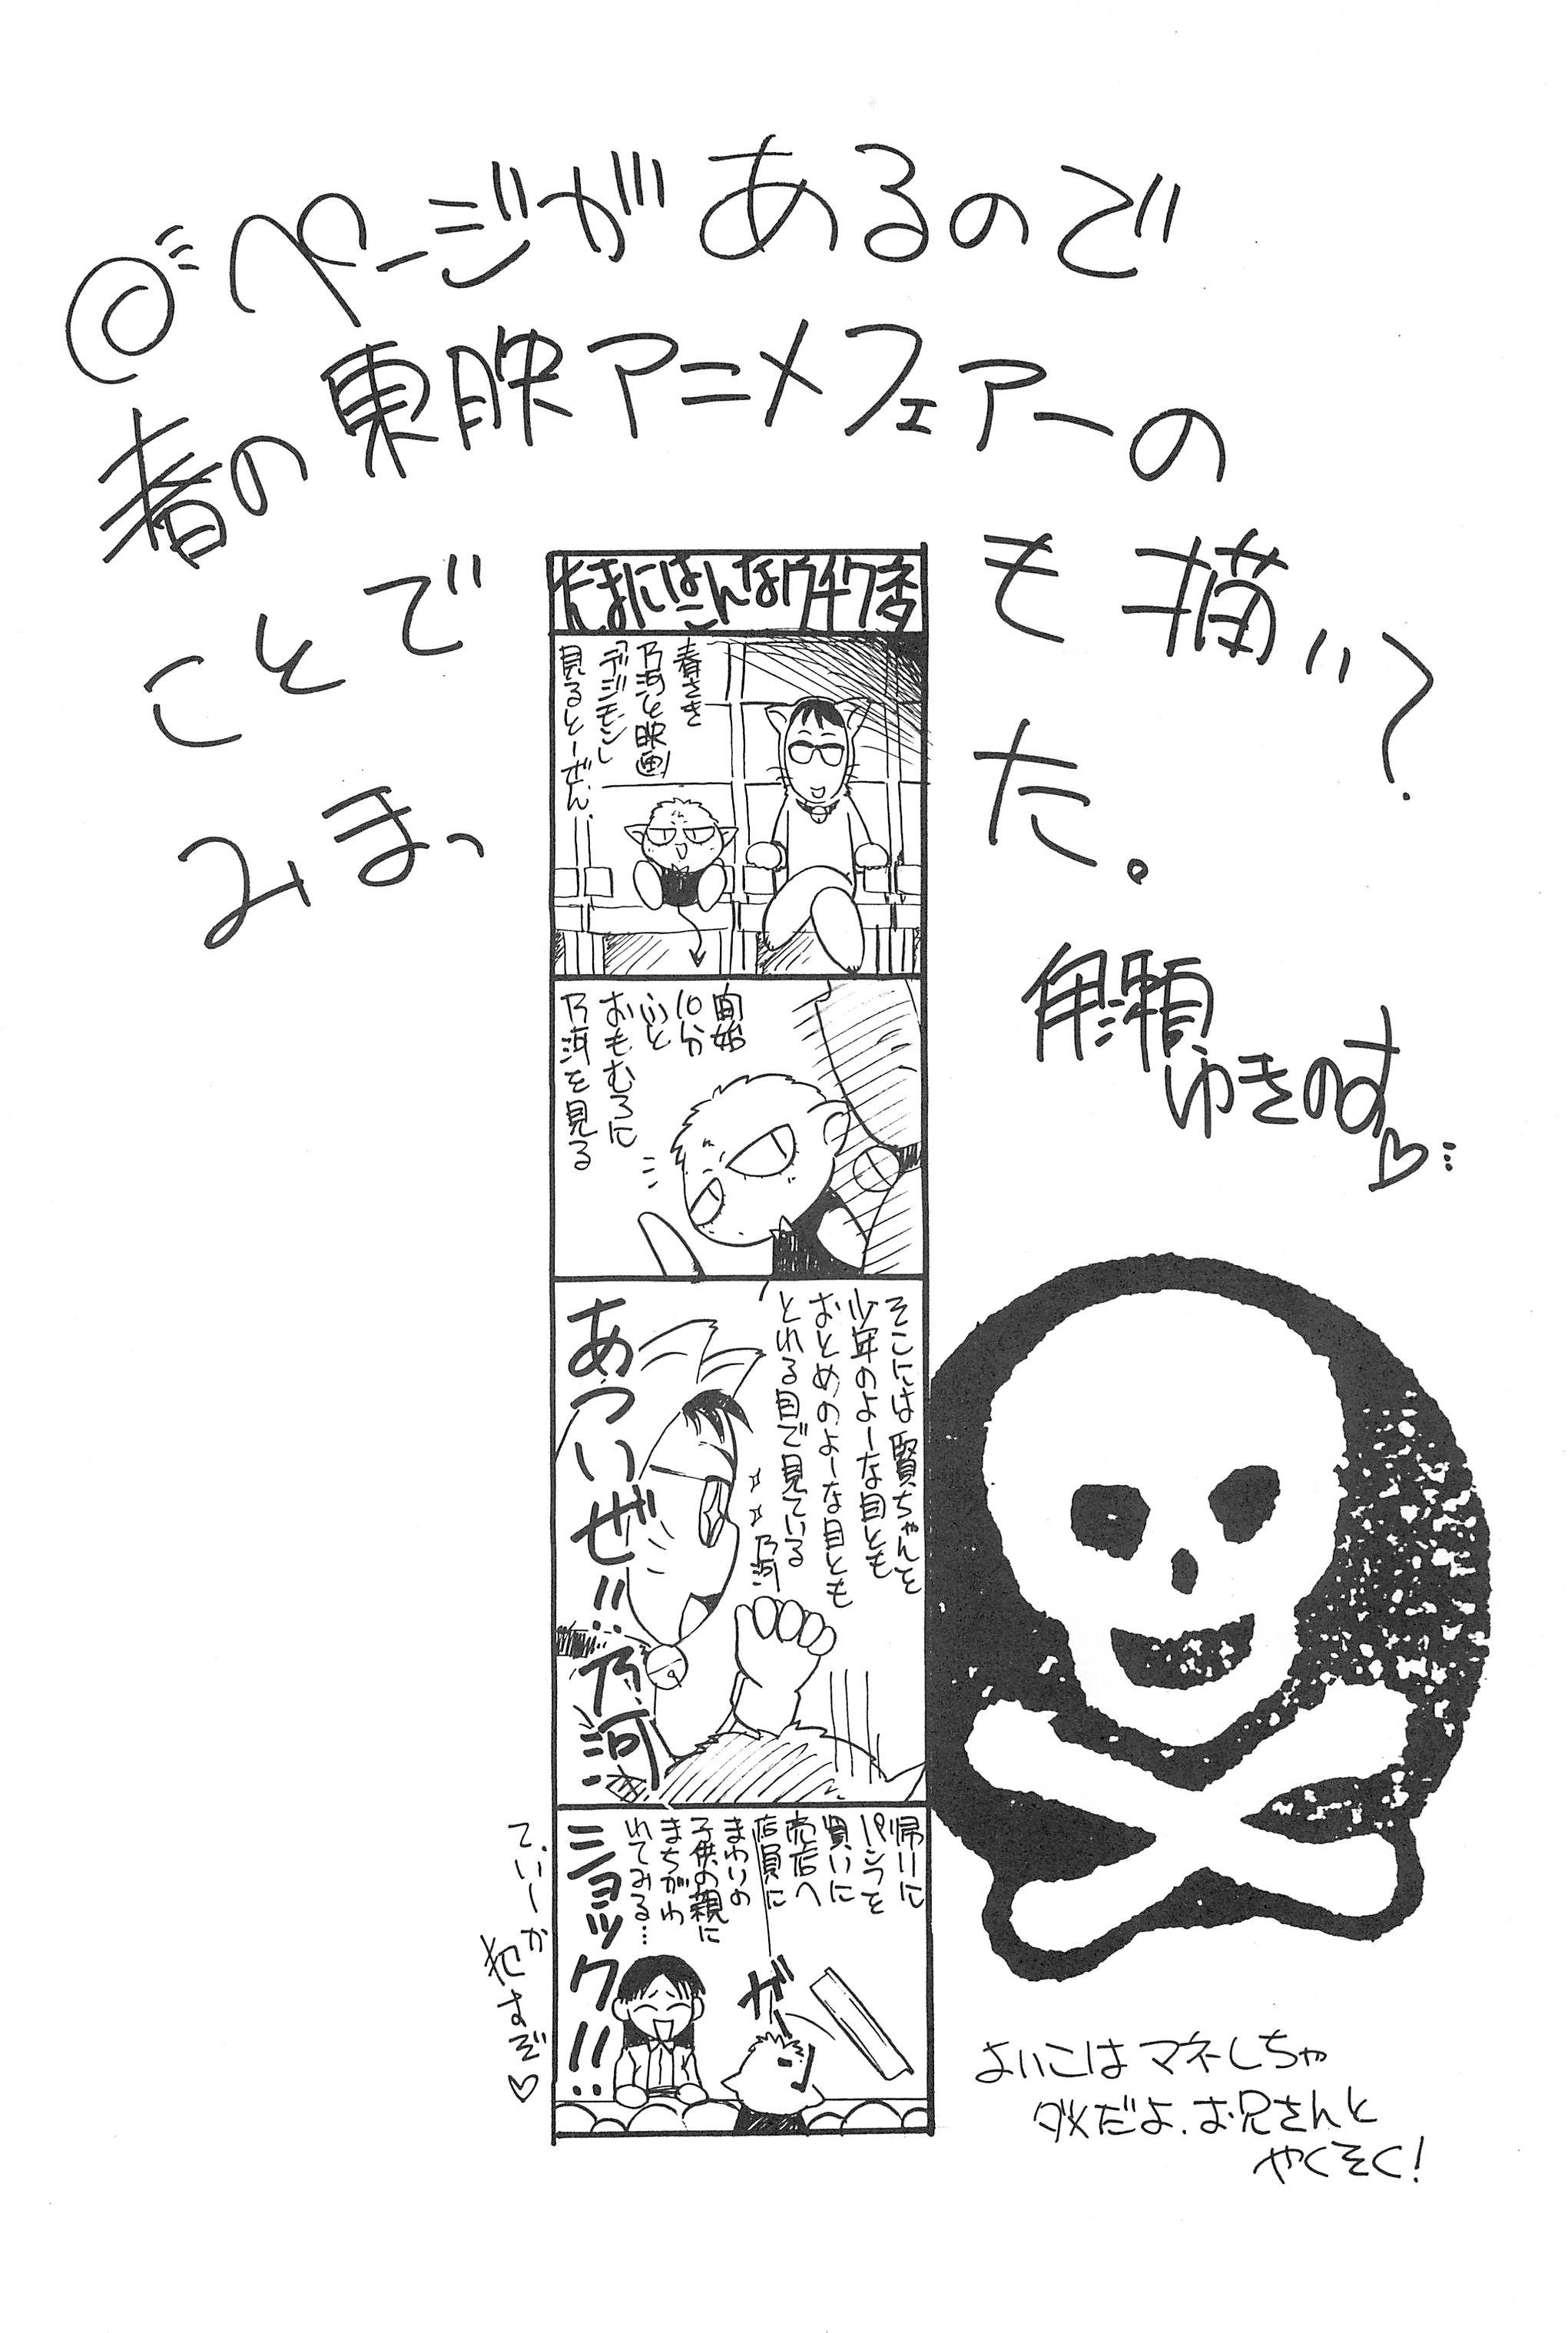 ページがあるので
春の東映アニメフェアーの
ことでも描い?
みまった。
ゆきのす♡
たまにはこんなウチワネタ
春さき
乃河と映画
「デジモン」
見るとーぜん、
開始
10分
ふと
おもむろに
乃河を見る
そこには賢ちゃんを
少年のよーな目とも
おとめのよーな目とも
とれる目で見ている
乃河
あついぜ!!乃河
帰りに
パンフを
買いに
売店へ
店員に
まわりの
子供の親に
まちがわ
れてみる…
ガーン
ショック!!
てぃーか
犯すぞ♡
よいこはマネしちゃ
ダメだよ、お兄さんと
やくそく!